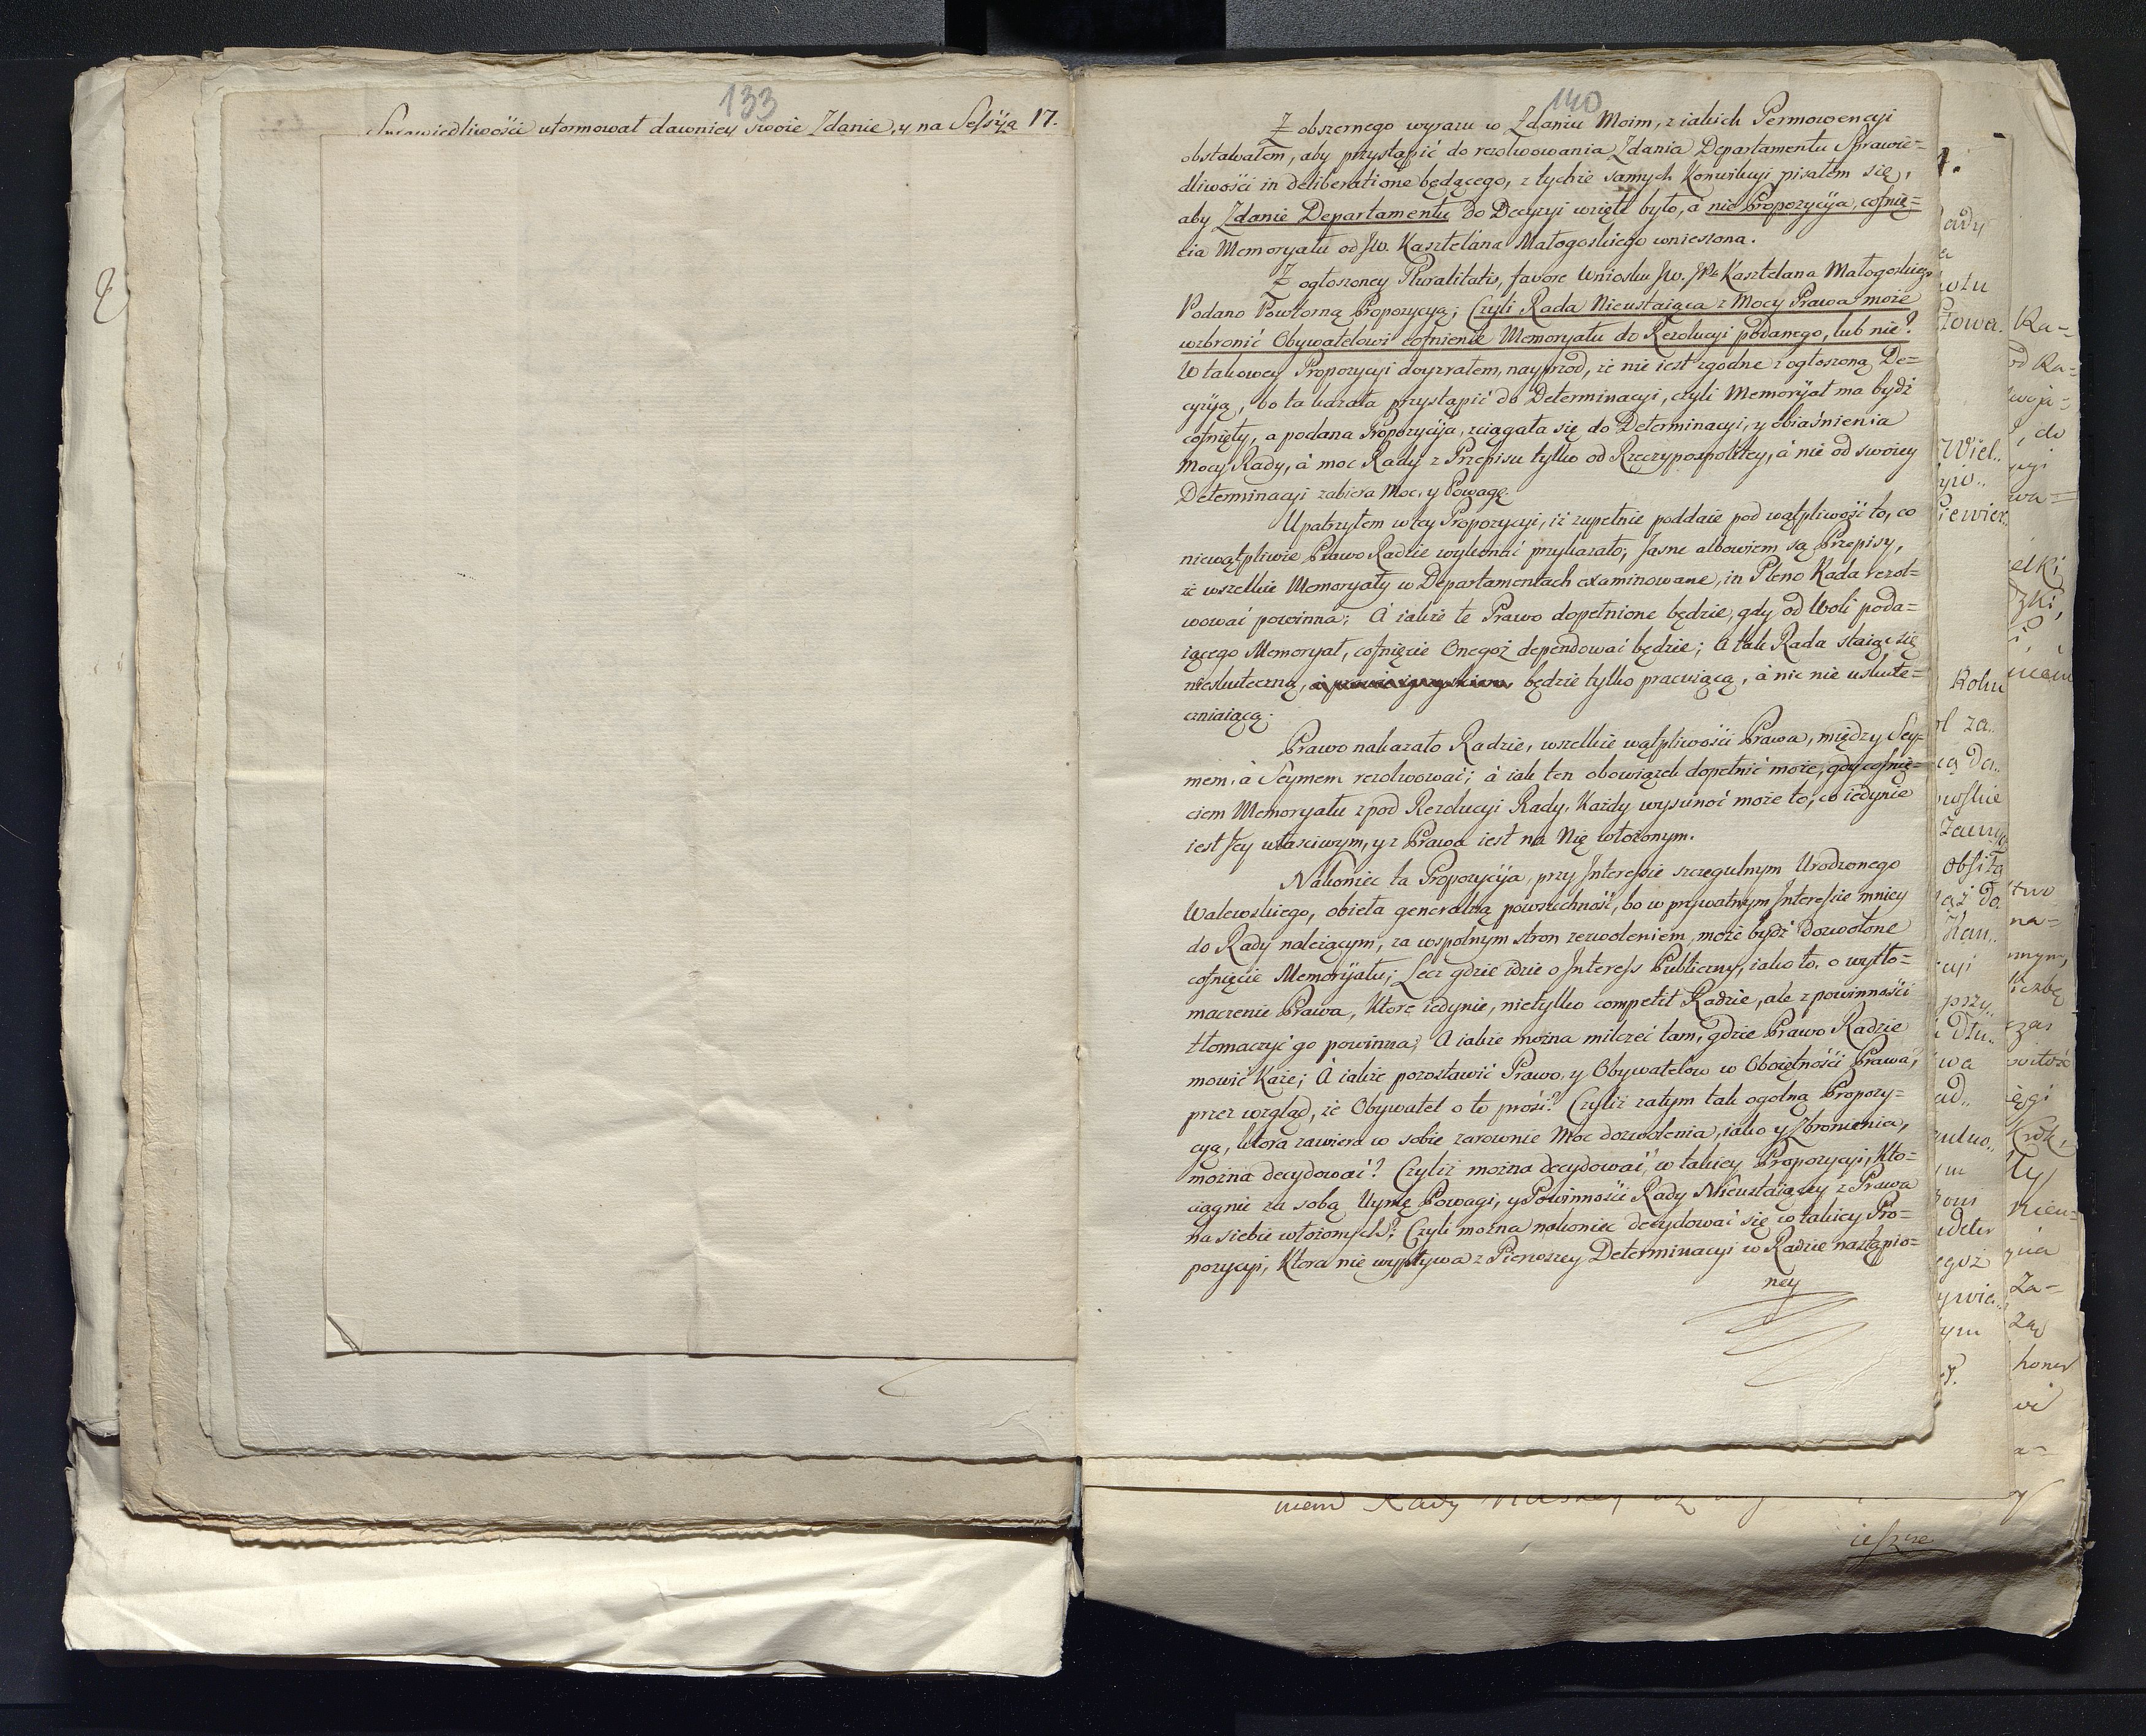 133
Sprawiedliwości uformował dawniey swoie Zdanie, y na Sessyą 17.
140
Z obszernego wyrazu w Zdaniu Moim, z iakich Permowencyi
obstawałem, aby przystąpić do rezolwowania Zdania Departamentu Sprawie=
dliwości in deliberatione będącego, z tychże samych Konwikcyi pisałem się,
aby Zdanie Departamentu do Decyzyi wzięte było, á nie Propozycyja, cofnię=
cia Memoryału od JW. Kasztelana Małogoskiego wniesiona.
Z ogłoszoney Pluralitatis, favore Wniosku JW. JPa Kasztelana Małogoskiego
Podano Powtorną Propozycyą; Czyli Rada Nieustaiąca z Mocy Prawa może
wzbronić Obywatelowi cofnienie Memoryału do Rezolucyi podanego, lub nie?
W takowey Propozycyi doyzrałem, nayprzod, że nie iest zgodne z ogłoszoną De=
cyzyą, bo ta kazała przystąpić do Determinacyi, czyli Memoryał ma bydź
cofnięty, a podana Propozycyja, sciągała się do Determinacyi, y obiaśnienia
Mocy Rady, á moc Rady z Przepisu tylko od Rzeczypospolitey, á nie od swoiey
Determinacyi zabiera Moc, y Powagę.
Upatrzyłem w tey Propozycyi, iż zupełnie poddaie pod wątpliwość to, co
niewątpliwie Prawo Radzie wykonać przykazało; Jasne albowiem są Przepisy,
że wszelkie Memoryały w Departamentach examinowane, in Pleno Rada rezol=
wować powinna; A iakże te Prawo dopełnione będzie, gdy od Woli poda=
iącego Memoryał, cofnięcie Onegoż dependować będzie; A tak Rada staiąc się
nieskuteczną, będzie tylko pracuiącą, á nic nie uskute=
czniaiącą.
Prawo nakazało Radzie, wszelkie wątpliwości Prawa, między Sey=
mem, á Seymem rezolwować; á iak ten obowiązek dopełnić może, gdy cofnię=
ciem Memoryału z pod Rezolucyi Rady, Każdy wysunoć może to, co iedynie
iest Jey właściwym, y z Prawa iest na Nię włożonym.
Nakoniec ta Propozycyja, przy Interessie szczegulnym Urodzonego
Walewskiego, obieła generalną powszechność, bo w prywatnym Interessie mniey
do Rady należącym, za wspolnym stron zezwoleniem, może bydź dozwolone
cofnięcie Memoryału; Lecz gdzie idzie o Interess Publiczny, iako to, o wytło=
maczenie Prawa, Które iedynie, nietylko competit Radzie, ale z powinności
tłomaczyć go powinna; A iakże można milczeć tam, gdzie Prawo Radzie
mowić Każe; A iakże pozostawić Prawo, y Obywatelow w Oboiętności Prawa,
przez wzgląd, że Obywatel o to prosi? Czyliż zatym tak ogolną Propozy=
cyą, ktora zawiera w sobie zarownie Moc dozwolenia, iako y Zbronienia,
można decydować? Czyliż można decydować w takiey Propozycyi, Kto=
ciągnie za sobą Uymę Powagi, y Powinności Rady Nieustaiącey z Prawa
na siebie włożonych? Czyli można nakoniec decydować się w takiey Pro=
pozycyi, Ktora nie wypływa z Pierwszey Determinacyi w Radzie nastąpio=
ney
ieszcze